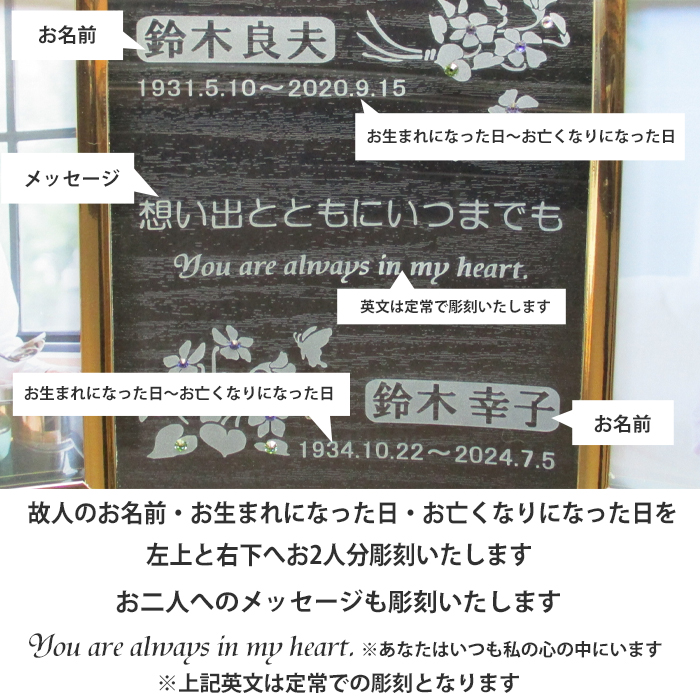 お名前
鈴木良夫
1931.5.10〜2020.9.15
お生まれになった日〜お亡くなりになった日
メッセージ
想い出とともにいつまでも
You are always in my heart.
英文は定常で彫刻いたします
お生まれになった日〜お亡くなりになった日
鈴木幸子
お名前
1934.10.22〜2024.7.5
故人のお名前・お生まれになった日・お亡くなりになった日を
左上と右下へお2人分彫刻いたします
お二人へのメッセージも彫刻いたします
You are always in my heart. ※あなたはいつも私の心の中にいます
※上記英文は定常での彫刻となります